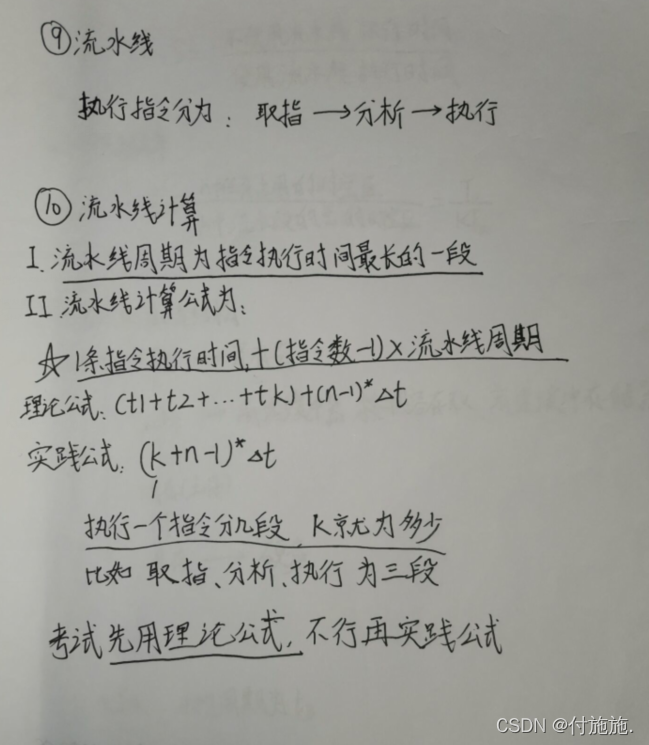 ⑨流水线
执行指令分为：取指→分析→执行
⑩流水线计算
I.流水线周期为指令执行时间最长的一段
II流水线计算公式为：
☆1条指令执行时间,+(指令数-1)×流水线周期
理论公式：(t1+t2+…+tk)+(n-1)*Δt
实践公式：(k+n-1)*Δt
执行一个指令分几段,k就为多少
比如取指、分析、执行为三段
考试先用理论公式,不行再实践公式
CSDN @付施施.